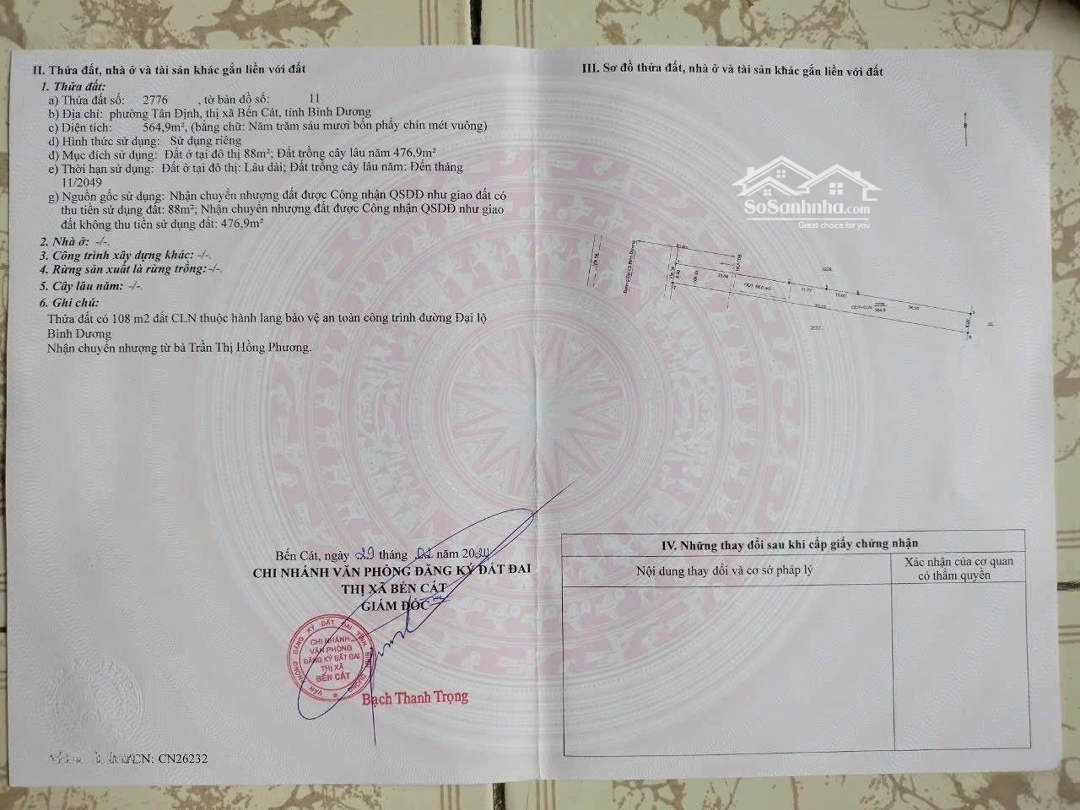 II. Thửa đất, nhà ở và tài sản khác gắn liền với đất
1. Thửa đất:
a) Thửa đất số: 2776 , tờ bản đồ số: 11
b) Địa chỉ: phường Tân Định, thị xã Bến Cát, tỉnh Bình Dương
c) Diện tích: 564,9m², (bằng chữ: Năm trăm sáu mươi bốn phẩy chín mét vuông)
d) Hình thức sử dụng: Sử dụng riêng
đ) Mục đích sử dụng: Đất ở tại đô thị 88m²; Đất trồng cây lâu năm 476,9m²
e) Thời hạn sử dụng: Đất ở tại đô thị: Lâu dài; Đất trồng cây lâu năm: Đến tháng
11/2049
g) Nguồn gốc sử dụng: Nhận chuyển nhượng đất được Công nhận QSDĐ như giao đất có
thu tiền sử dụng đất: 88m²; Nhận chuyển nhượng đất được Công nhận QSDĐ như giao
đất không thu tiền sử dụng đất: 476,9m²
2. Nhà ở: -/-.
3. Công trình xây dựng khác: -/-.
4. Rừng sản xuất là rừng trồng:-/-.
5. Cây lâu năm: -/-.
6. Ghi chú:
Thửa đất có 108 m2 đất CLN thuộc hành lang bảo vệ an toàn công trình đường Đại lộ
Bình Dương
Nhận chuyển nhượng từ bà Trần Thị Hồng Phương.
Bến Cát, ngày 29 tháng 02 năm 2024
CHI NHÁNH VĂN PHÒNG ĐĂNG KÝ ĐẤT ĐAI
THỊ XÃ BẾN CÁT
GIÁM ĐỐC
VĂN PHÒNG ĐĂNG KÝ ĐẤT ĐAI TỈNH BÌNH DƯƠNG
CHI NHÁNH
VĂN PHÒNG
ĐĂNG KÝ ĐẤT ĐAI
THỊ XÃ
BẾN CÁT
Bạch Thanh Trọng
CN: CN26232
III. Sơ đồ thửa đất, nhà ở và tài sản khác gắn liền với đất
SoSanhnha.com
Great choice for you
IV. Những thay đổi sau khi cấp giấy chứng nhận
Nội dung thay đổi và cơ sở pháp lý
Xác nhận của cơ quan
có thẩm quyền